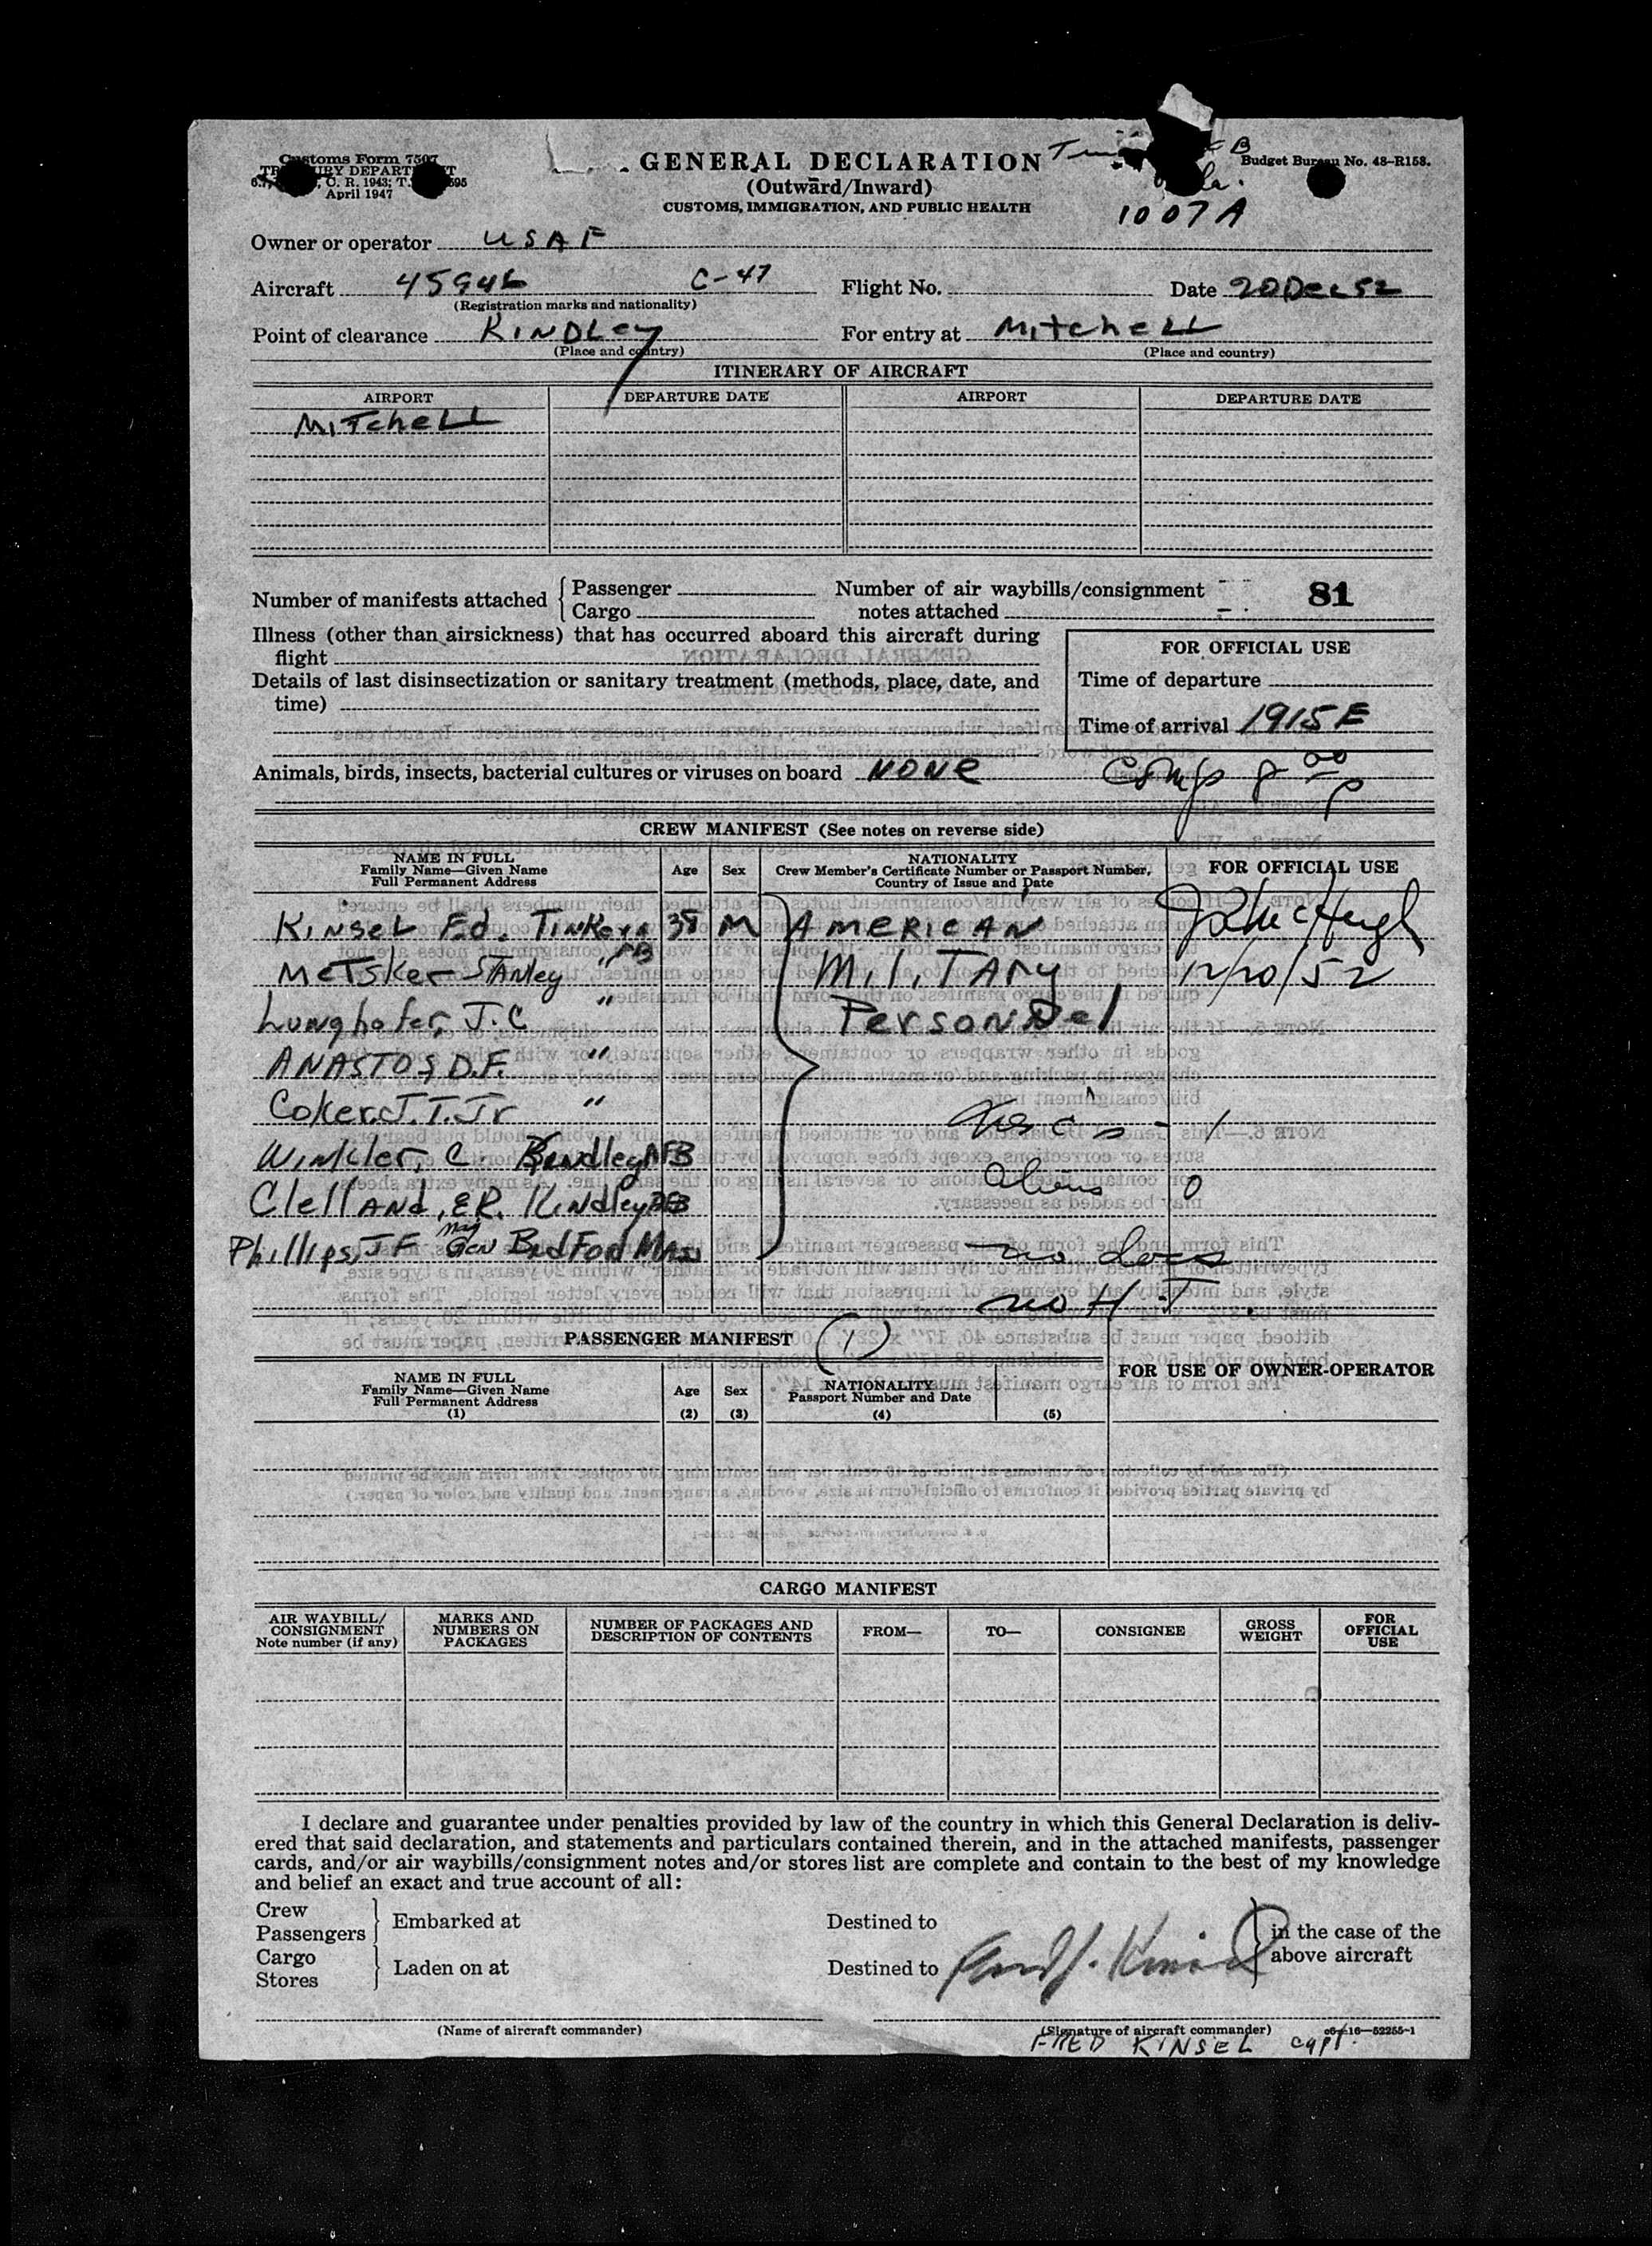 Customs Form 7507
April 1947
GENERAL DECLARATION
(Outward/Inward)
CUSTOMS, IMMIGRATION, AND PUBLIC HEALTH
Budget Bureau No. 48-R158.
1007A
Owner or operator USAF
Aircraft C-47 Flight No. Date 20 Dec 52
(Registration marks and nationality)
Point of clearance KINDLey For entry at MitcheLL
(Place and country) (Place and country)
ITINERARY OF AIRCRAFT
AIRPORT DEPARTURE DATE AIRPORT DEPARTURE DATE
MITcheLL
Number of manifests attached { Passenger Number of air waybills/consignment 81
Cargo notes attached
Illness (other than airsickness) that has occurred aboard this aircraft during
flight
FOR OFFICIAL USE
Details of last disinsectization or sanitary treatment (methods, place, date, and
time)
Time of departure
Time of arrival 1915E
Animals, birds, insects, bacterial cultures or viruses on board NONe
CREW MANIFEST (See notes on reverse side)
NAME IN FULL
Family Name—Given Name
Full Permanent Address
Age Sex
NATIONALITY
Crew Member's Certificate Number or Passport Number,
Country of Issue and Date
FOR OFFICIAL USE
KinseL Ed. TinKer AFB 38 M AMERICAN
MeTsker STANley " MiliTAry 12/20/52
Lunghofer, J.C " Personnel
ANASTOS, D.F. "
Coker. J.T. Jr "
Winkler, C. KindleyAFB
ClellAnd, E.R. KindleyAFB Aliens 0
Phillips, J F Maj Gen BedFord Mass no docs
no H T
PASSENGER MANIFEST (1)
NAME IN FULL
Family Name—Given Name
Full Permanent Address
(1)
Age
(2)
Sex
(3)
NATIONALITY
Passport Number and Date
(4) (5)
FOR USE OF OWNER-OPERATOR
CARGO MANIFEST
AIR WAYBILL/
CONSIGNMENT
Note number (if any)
MARKS AND
NUMBERS ON
PACKAGES
NUMBER OF PACKAGES AND
DESCRIPTION OF CONTENTS
FROM— TO— CONSIGNEE
GROSS
WEIGHT
FOR
OFFICIAL
USE
I declare and guarantee under penalties provided by law of the country in which this General Declaration is deliv-
ered that said declaration, and statements and particulars contained therein, and in the attached manifests, passenger
cards, and/or air waybills/consignment notes and/or stores list are complete and contain to the best of my knowledge
and belief an exact and true account of all:
Crew
Passengers } Embarked at Destined to } in the case of the
Cargo above aircraft
Stores } Laden on at Destined to
(Name of aircraft commander) (Signature of aircraft commander) c6—16—52255-1
FRED KINSEL capt.